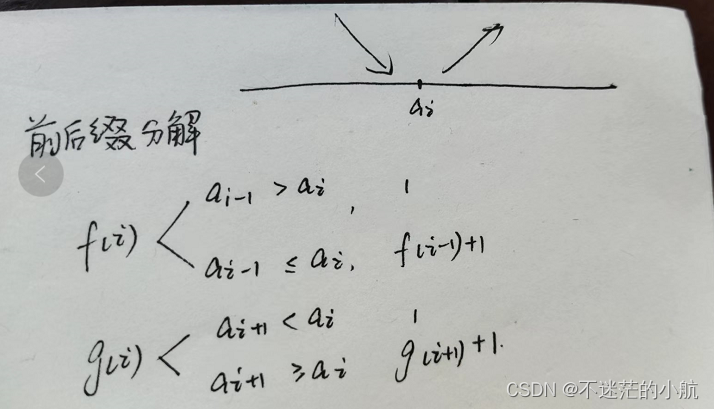 aᵢ
前后缀分解
f(i) < aᵢ₋₁ > aᵢ, 1
aᵢ₋₁ ≤ aᵢ, f(i-1)+1
g(i) < aᵢ₊₁ < aᵢ 1
aᵢ₊₁ ≥ aᵢ g(i+1)+1.
CSDN @不迷茫的小航